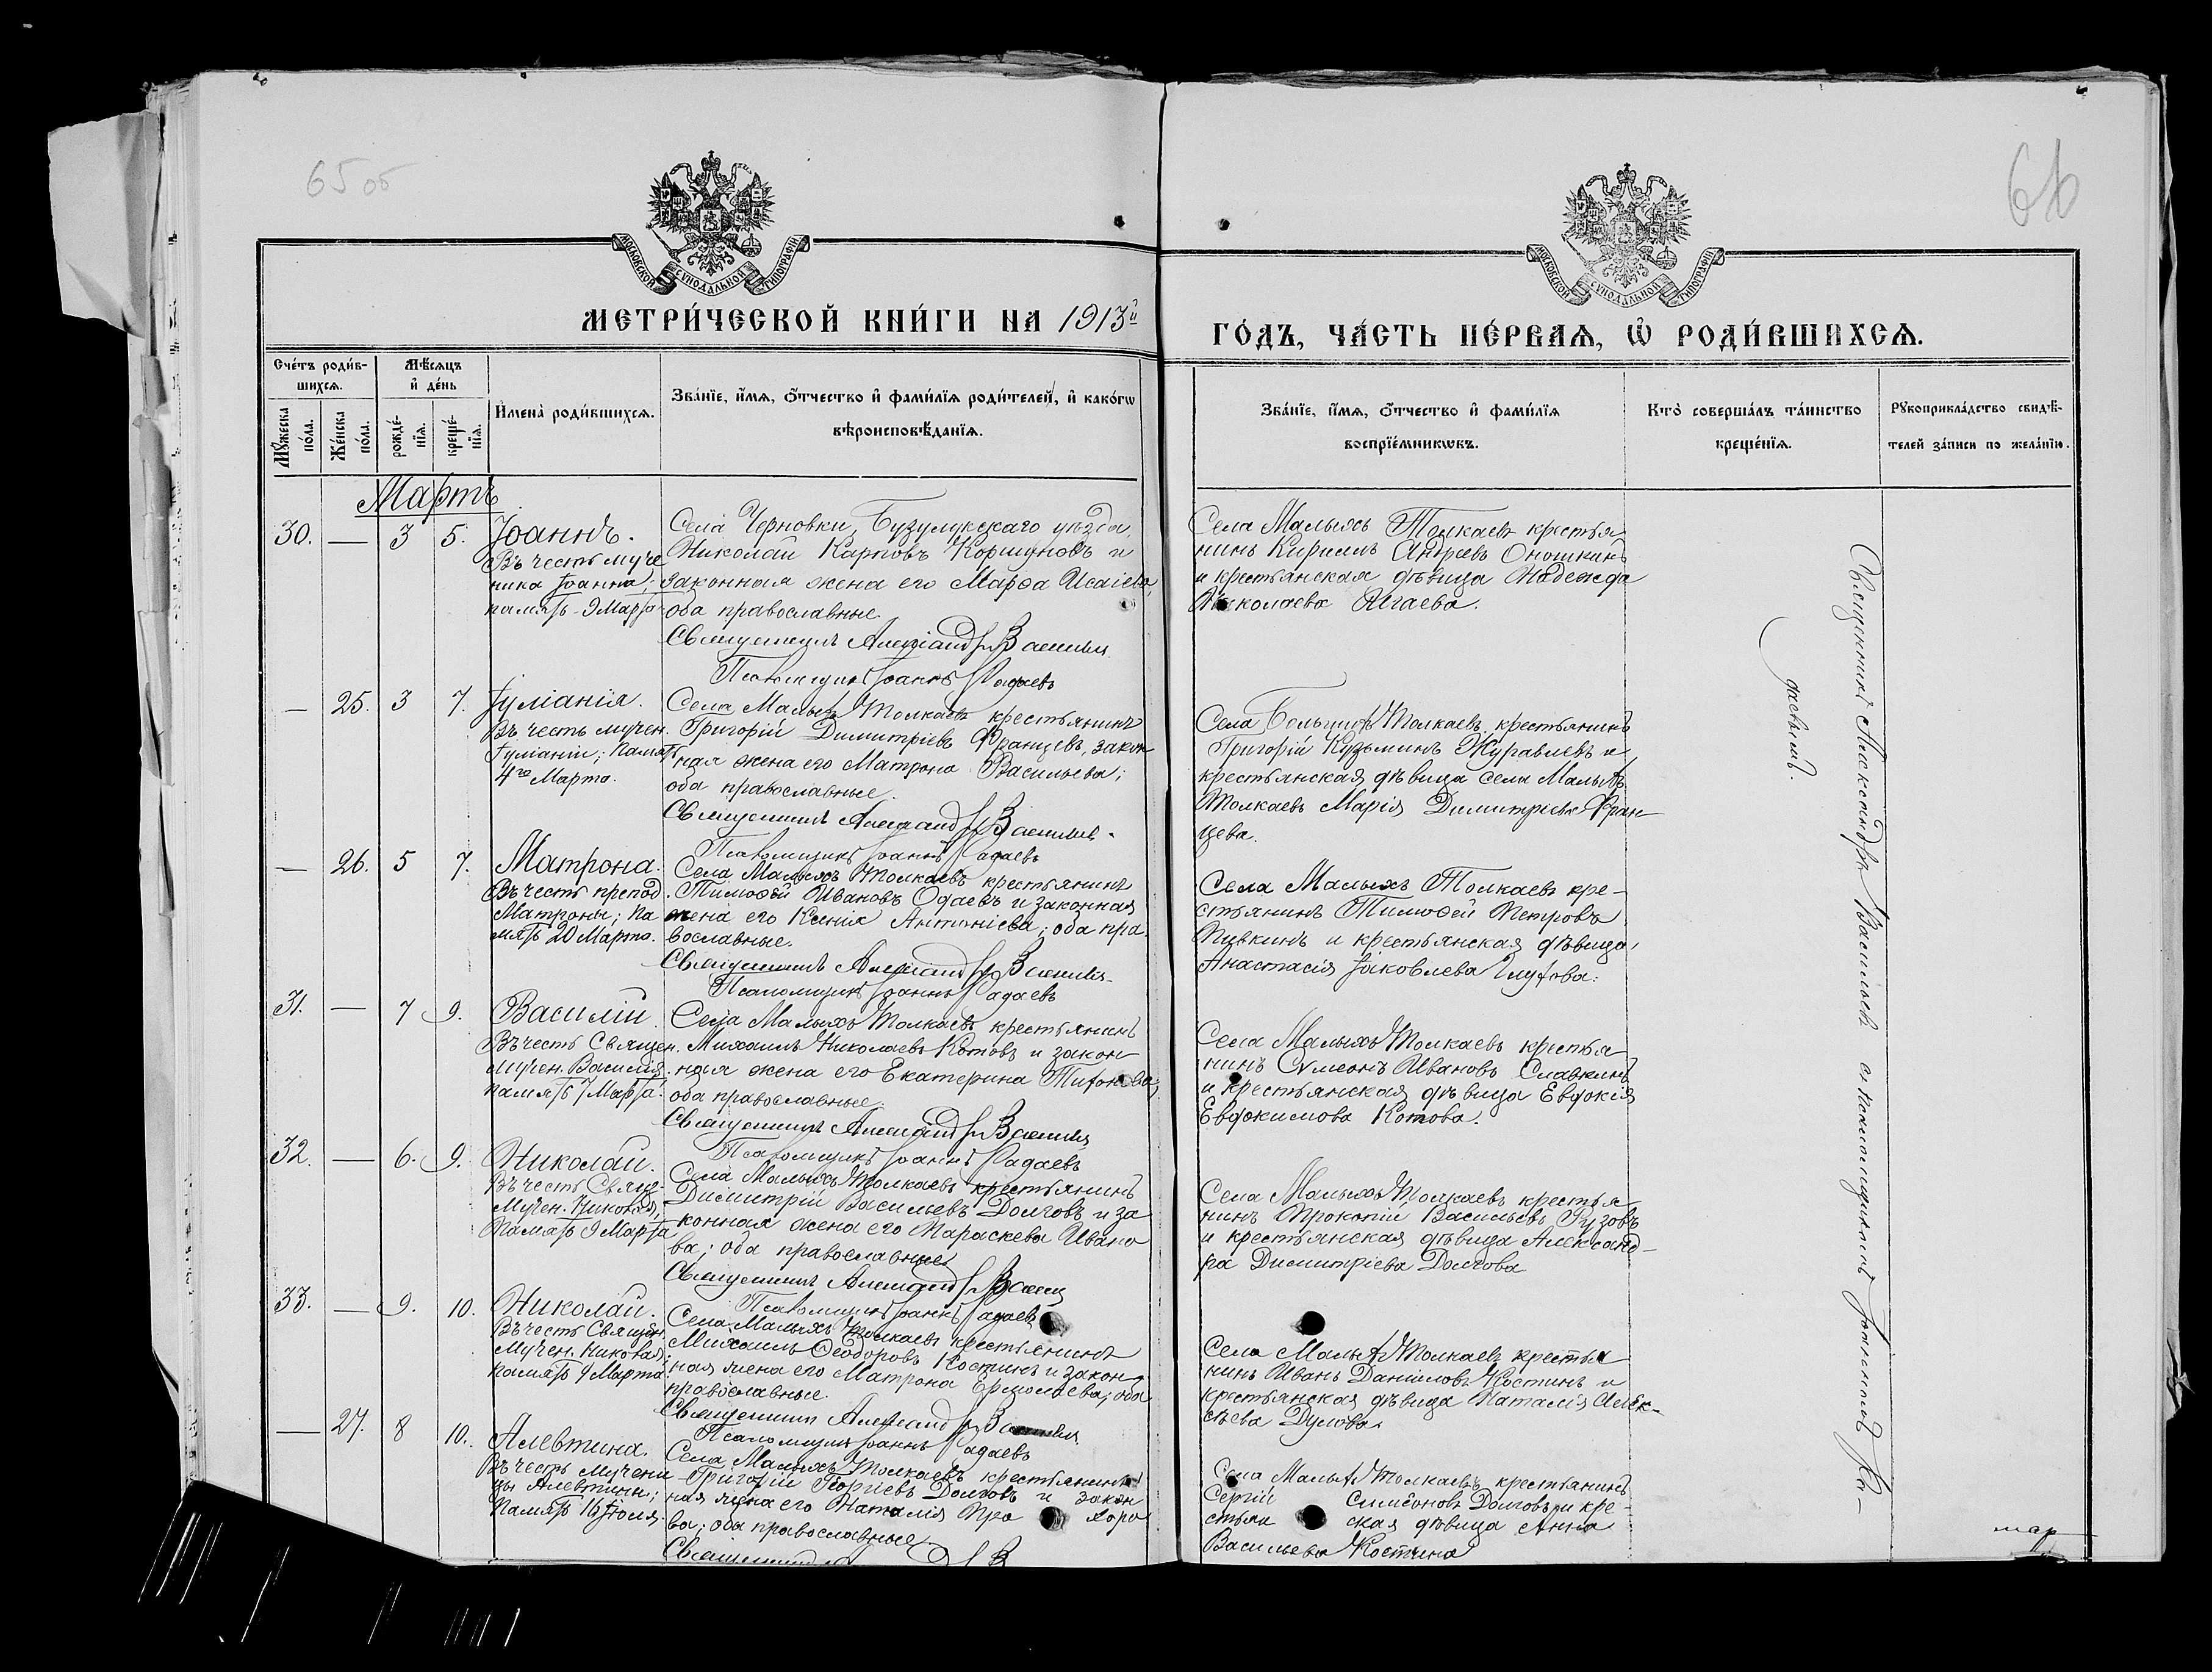 65 об
66
МОСКОВСКОЙ СѴНОДАЛЬНОЙ ТИПОГРАФІИ
МОСКОВСКОЙ СѴНОДАЛЬНОЙ ТИПОГРАФІИ
МЕТРИ́ЧЕСКОЙ КНИ́ГИ НА 1913й
ГО́ДЪ, ЧА́СТЬ ПЕ́РВАЯ, Ѡ҆ РОДИ́ВШИХСЯ.
Сче́тъ роди́в-
шихся.
Мѣ́сяцъ
и҆ де́нь
Мꙋ́жеска по́ла.
Же́нска по́ла.
рожде́-нїя.
креще́-нїя.
И҆мена̀ роди́вшихся.
Зва́нїе, и҆́мя, ѻ҆́тчество и҆ фами́лїя роди́телей, и҆ како́гѡ
вѣроисповѣ́данїя.
Зва́нїе, и҆́мя, ѻ҆́тчество и҆ фами́лїя
воспрїе́мникѡвъ.
Кто̀ соверша́лъ та́инство
креще́нїя.
Рꙋкоприкла́дство свидѣ́-
телей за́писи по жела́нїю.
Мартъ
30. — 3 5. Іоаннъ.
Въ честь муче
ника Іоанна;
память 9 Марта
Села Черновки, Бузулукскаго уѣзда,
Николай Карповъ Коршуновъ и
законная жена его Марѳа Исаіева,
оба православные.
Священникъ Александръ Васильев
Псаломщикъ Іоаннъ Радаевъ
Села Малыхъ Толкаевъ крестья
нинъ Кириллъ Андреевъ Оношкинъ
и крестьянская дѣвица Надежда
Николаева Игаева.
— 25. 3 7. Іуліанія.
Въ честь мучен.
Іуліаніи; память
4го Марта.
Села Малыхъ Толкаевъ крестьянинъ
Григорій Димитріевъ Францевъ, закон
ная жена его Матрона Васильева;
оба православные.
Священникъ Александръ Васильев.
Псаломщикъ Іоаннъ Радаевъ
Села Большихъ Толкаевъ, крестьянинъ
Григорій Кузьминъ Журавлевъ и
крестьянская дѣвица села Малыхъ
Толкаевъ Марія Димитріева Фран-
цева.
— 26. 5 7. Матрона.
Въ честь препод.
Матроны; па
мять 20 Марта.
Села Малыхъ Толкаевъ крестьянинъ
Тимоѳей Ивановъ Одаевъ и законная
жена его Ксенія Антоніева; оба пра
вославные.
Священникъ Александръ Васильев
Псаломщикъ Іоаннъ Радаевъ
Села Малыхъ Толкаевъ кре-
стьянинъ Тимоѳей Петровъ
Пивкинъ и крестьянская дѣвица
Анастасія Іаковлева
31. — 7 9. Василій.
Въ честь Священ.
мучен. Василія
память 7 Марта.
Села Малыхъ Толкаевъ крестьянинъ
Михаилъ Николаевъ Котовъ и закон
ная жена его Екатерина Тихонова,
оба православные.
Священникъ Александръ Васильев
Псаломщикъ Іоаннъ Радаевъ
Села Малыхъ Толкаевъ крестья
нинъ Сѵмеонъ Ивановъ Славкинъ
и крестьянская дѣвица Евдокія
Евдокимова Котова.
32. — 6. 9. Николай.
Въ честь Свящ.
Мучен. Николая,
Память 9 Марта
Села Малыхъ Толкаевъ крестьянинъ
Димитрій Васильевъ Долговъ и за
конная жена его Параскева Ивано
ва; оба православные
Священникъ Александръ Васильев
Псаломщикъ Іоаннъ Радаевъ
Села Малыхъ Толкаевъ крестья
нинъ Прокопій Васильевъ Рузовъ
и крестьянская дѣвица Александ-
ра Димитріева Долгова
33. — 9. 10. Николай.
Въ честь Священ.
Мучен. Николая;
память 9 Марта
Села Малыхъ Толкаевъ крестьянинъ
Михаилъ Ѳеодоровъ Костинъ и закон
ная жена его Матрона Ермолаева; оба
православные.
Священникъ Александръ Васильев
Псаломщикъ Іоаннъ Радаевъ
Села Малыхъ Толкаевъ крестья
нинъ Иванъ Даніиловъ Костинъ и
крестьянская дѣвица Наталія Алек-
сѣева Дулова.
— 27. 8 10. Алевтина.
Въ честь Мучени
цы Алевтины;
Память 16 Іюля.
Села Малыхъ Толкаевъ крестьянинъ
Григорій Георгіевъ Долговъ и закон
ная жена его Наталія Про хоро
ва; оба православные.
Священникъ
Села Малыхъ Толкаевъ крестьянинъ
Сергій Симеоновъ Долговъ и кре-
стьян ская дѣвица Анна
Васильева Костина
Священникъ Александръ Васильевъ съ псаломщикомъ Іоанномъ Ра-
даевымъ.
мар